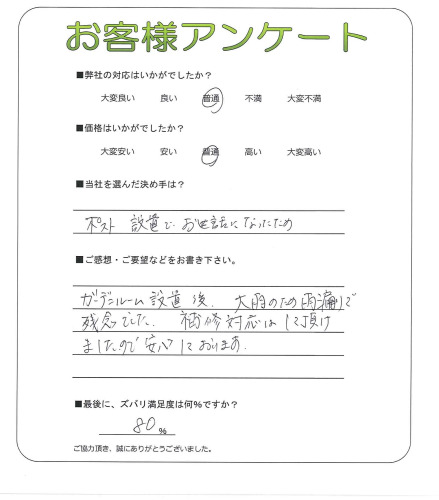 お客様アンケート
■弊社の対応はいかがでしたか?
大変良い 良い 普通 不満 大変不満
■価格はいかがでしたか?
大変安い 安い 普通 高い 大変高い
■当社を選んだ決め手は?
ポスト 設置で お世話になったため
■ご感想・ご要望などをお書き下さい。
ガーデンルーム設置後、大雨のため雨漏りで
残念でした。 補修対応はして頂け
ましたので安心しております。
■最後に、ズバリ満足度は何%ですか?
80 %
ご協力頂き、誠にありがとうございました。